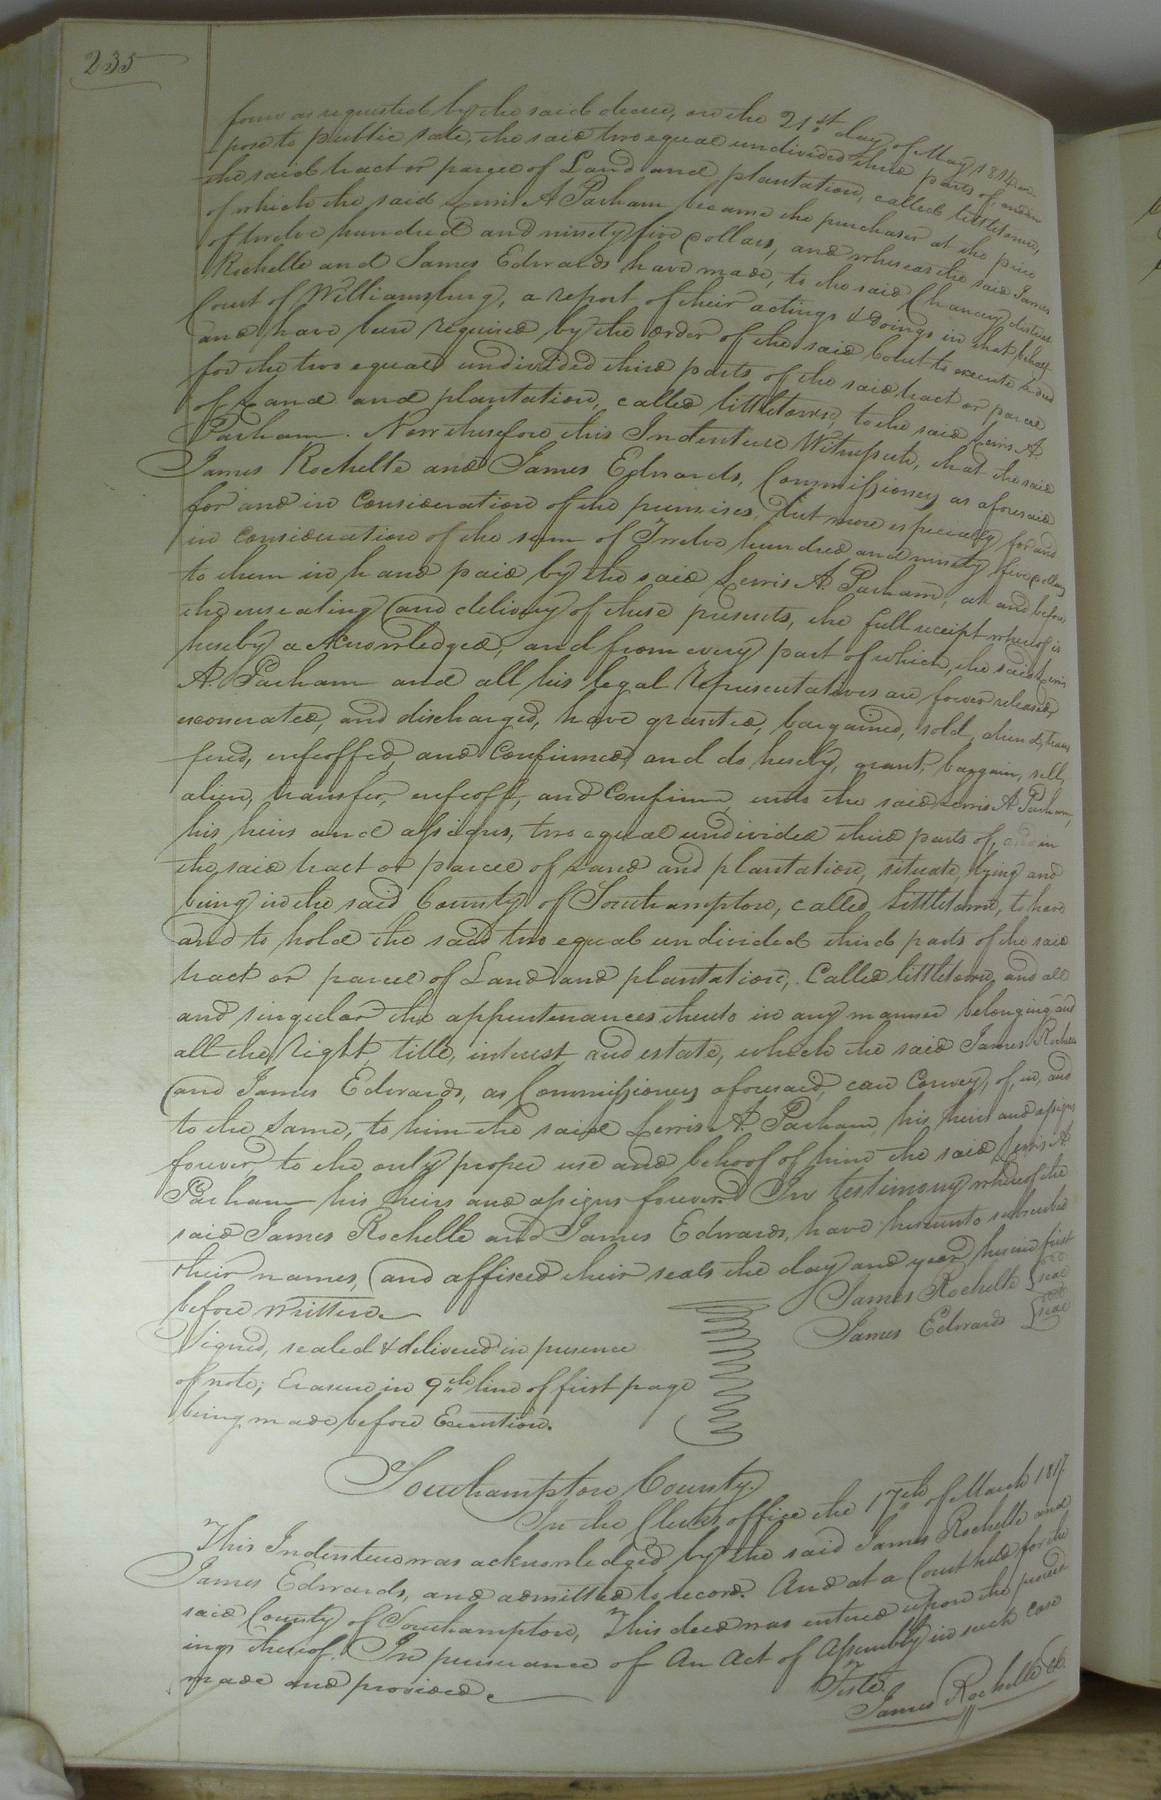 235
form as requested by the said decree, on the 21st day of May 1816 ex
pose to public sale, the said two equal undivided third parts of, and in
the said tract or parcel of Land and plantation, called littletown,
of which the said Lewis A Parham became the purchaser at the price
of twelve hundred and ninety five dollars, and whereas the said James
Rochelle and James Edwards have made, to the said Chancery district
Court of Williamsburg, a report of their actings & doings in that behalf
and have been required by the order of the said Court to execute a deed
for the two equal undivided third parts of the said tract or parcel
of Land and plantation, called littletown, to the said Lewis A.
Parham. Now therefore this Indenture Witnesseth, that the said
James Rochelle and James Edwards, Commissioners as aforesaid
for and in consideration of the premises, but more especially for and
in consideration of the sum of Twelve hundred and ninety five dollars
to them in hand paid by the said Lewis A. Parham, at and before
the ensealing and delivery of these presents, the full receipt whereof is
hereby acknowledged, and from every part of which, the said Lewis
A. Parham and all his legal representatives are forever released,
exonerated, and discharged, have granted, bargained, sold, aliened, trans
fered, enfeoffed, and confirmed and do hereby, grant, bargain, sell,
alien, transfer, enfeoff, and confirm, unto the said Lewis A Parham,
his heirs and assigns, two equal undivided third parts of, and in
the said tract or parcel of Land and plantation, situate, lying and
being in the said County of Southampton, called Littletown, to have
and to hold the said two equal undivided third parts of the said
tract or parcel of Land and plantation, Called littletown, and all
and singular the appurtenances thereto in any manner belonging and
all the right, title, interest and estate, which the said James Rochelle
and James Edwards, as Commissioners aforesaid, can Convey, of, in, and
to the same, to him the said Lewis A. Parham, his heirs and assigns
forever, to the only proper use and behoof of him the said Lewis A.
Parham his heirs and assigns forever. In testimony whereof the
said James Rochelle and James Edwards, have hereunto subscribed
their names, and affixed their seals the day and year herein first
before written
James Rochelle {seal
James Edwards {seal
Signed, sealed & delivered in presence
of note; Erasure in 9th line of first page
being made before Execution.
Southampton County.
In the Clerks office the 17th of March 1817.
This Indenture was acknowledged by the said James Rochelle and
James Edwards, and admitted to record. And at a Court held for the
said County of Southampton, This deed was entered upon the proceed
ings thereof. In pursuance of An Act of Assembly in such case
made and provided
Teste
James Rochelle Cl.